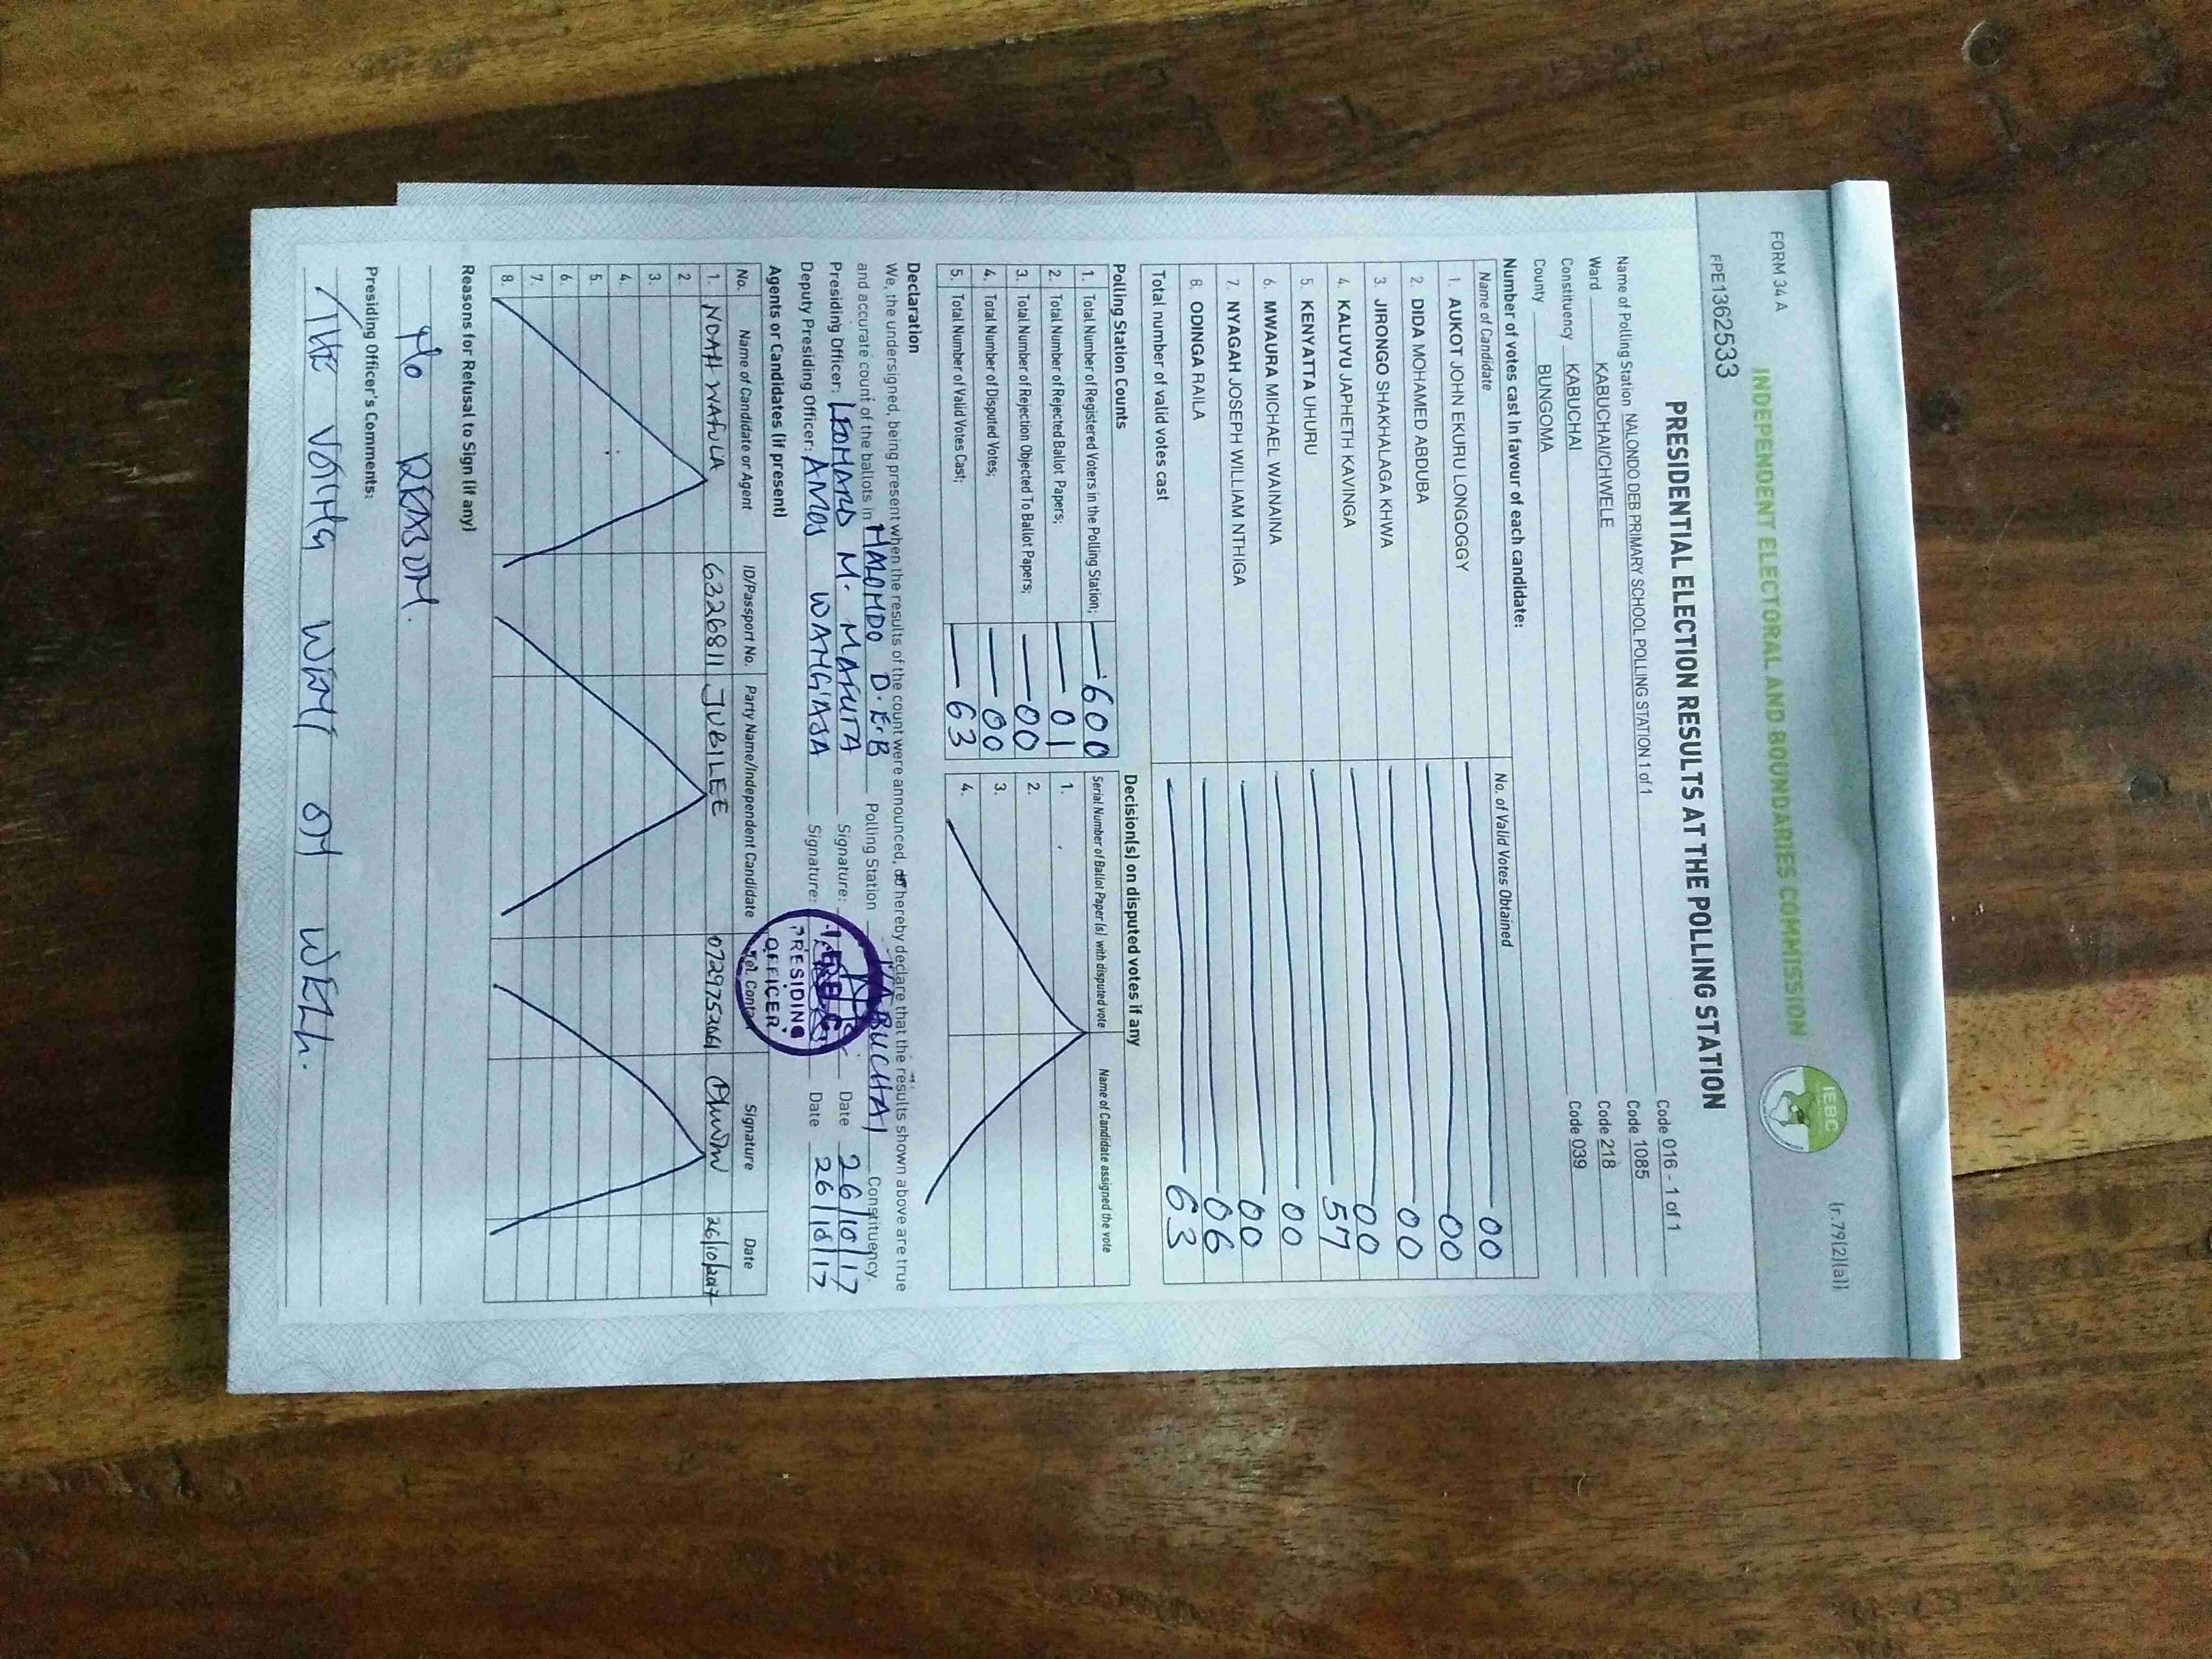 FORM 34 A
(r.79(2)(a))
INDEPENDENT ELECTORAL AND BOUNDARIES COMMISSION
IEBC
FPE1362533
PRESIDENTIAL ELECTION RESULTS AT THE POLLING STATION
Name of Polling Station NALONDO DEB PRIMARY SCHOOL POLLING STATION 1 of 1 Code 016 - 1 of 1
Ward KABUCHAI/CHWELE Code 1085
Constituency KABUCHAI Code 218
County BUNGOMA Code 039
Number of votes cast in favour of each candidate:
Name of Candidate No. of Valid Votes Obtained
1. AUKOT JOHN EKURU LONGOGGY 00
2. DIDA MOHAMED ABDUBA 00
3. JIRONGO SHAKHALAGA KHWA 00
4. KALUYU JAPHETH KAVINGA 00
5. KENYATTA UHURU 57
6. MWAURA MICHAEL WAINAINA 00
7. NYAGAH JOSEPH WILLIAM NTHIGA 00
8. ODINGA RAILA 06
Total number of valid votes cast 63
Polling Station Counts
1. Total Number of Registered Voters in the Polling Station; 600
2. Total Number of Rejected Ballot Papers; 01
3. Total Number of Rejection Objected To Ballot Papers; 00
4. Total Number of Disputed Votes; 00
5. Total Number of Valid Votes Cast; 63
Decision(s) on disputed votes if any
Serial Number of Ballot Paper (s) with disputed vote Name of Candidate assigned the vote
1.
2.
3.
4.
Declaration
We, the undersigned, being present when the results of the count were announced, do hereby declare that the results shown above are true
and accurate count of the ballots in NALONDO D.E.B Polling Station KABUCHAI Constituency.
Presiding Officer: LEONARD M. MAFUTA Signature: Date 26/10/17
Deputy Presiding Officer: AMOS WANG'AJA Signature: Date 26/10/17
I.E.B.C
PRESIDING
OFFICER
Agents or Candidates (if present)
No. Name of Candidate or Agent ID/Passport No. Party Name/Independent Candidate Tel. Contact Signature Date
1. NOAH WAFULA 6326811 JUBILEE 0729753661 26/10/2017
2
3.
4.
5.
6.
7.
8.
Reasons for Refusal to Sign (if any)
NO REASON.
Presiding Officer's Comments:
THE VOTING WENT ON WELL.